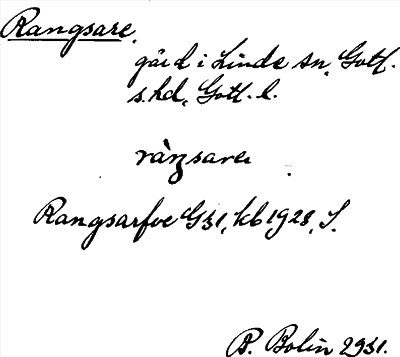 Rangsare,
gård i Linde sn, Gotl.
s. hd, Gotl. l.
ràŋsarɐ
Rangsarfve G31, kb 1928, S.
B. Bolin 2931.